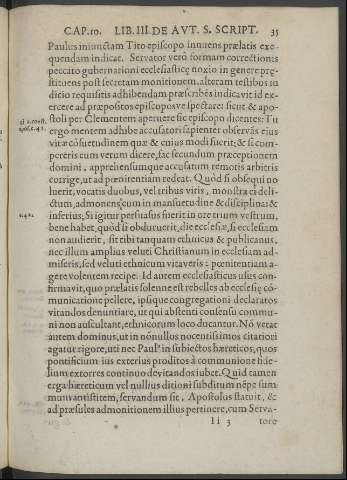 CAP.10. LIB. III. DE AVT. S. SCRIPT. 35
Paulus iniunctam Tito episcopo innuens prælatis exe-
quendam indicat. Servator verò formam correctionis
peccato gubernationi ecclesiasticę noxio in genere præ-
stituens post secretam monitionem, alteram testibus iu
dicio requisitis adhibendam præscribẽs indicavit id ex-
ercere ad præpositos episcopósve spectare: sicut & apo-
stoli per Clementem aperuere sic episcopo dicentes: Tu
ergo mentem adhibe accusatori sapienter observãs eius
vitæ cõsuetudinem quæ & cuius modi fuerit: & si com-
pereris eum verum dicere, fac secundum præceptionem
domini, apprehensumque accusatum remotis arbitris
corrige, ut ad pœnitentiam redeat. Quòd si obsequi no
luerit, vocatis duobus, vel tribus viris, monstra ei deli-
ctum, admonens eum in mansuetudine & disciplina: &
inferius; Si igitur persuasus fuerit in ore trium vestrum,
bene habet, quòd si obduruerit, dic ecclesiæ, si ecclesiam
non audierit, sit tibi tanquam ethnicus & publicanus,
nec illum amplius veluti Christianum in ecclesiam ad-
miseris, sed veluti ethnicum vitaveris: pœnitentiam a-
gere volentem recipe. Id autem ecclesiasticus usus con-
firmavit, quo prælatis solenne est rebelles ab ecclesię cõ-
municatione pellere, ipsique congregationi declaratos
vitandos denuntiare, ut qui absenti consensu commu-
ni non auscultant, ethnicorum loco ducantur. Nõ vetat
autem dominus, ut in nõnullos nocentissimos citatiori
agatur rigore, uti nec Paulꝰ in subiectos hæreticos, quos
pontificium ius exterius proditos à communione fide-
lium extorres continuo devitandos iubet. Quid tamen
erga hæreticum vel nullius ditioni subditum nẽpe sum-
mum antistitem, servandum sit, Apostolus statuit, &
ad præsules admonitionem illius pertinere, cum Serva-
Ii 3 tore